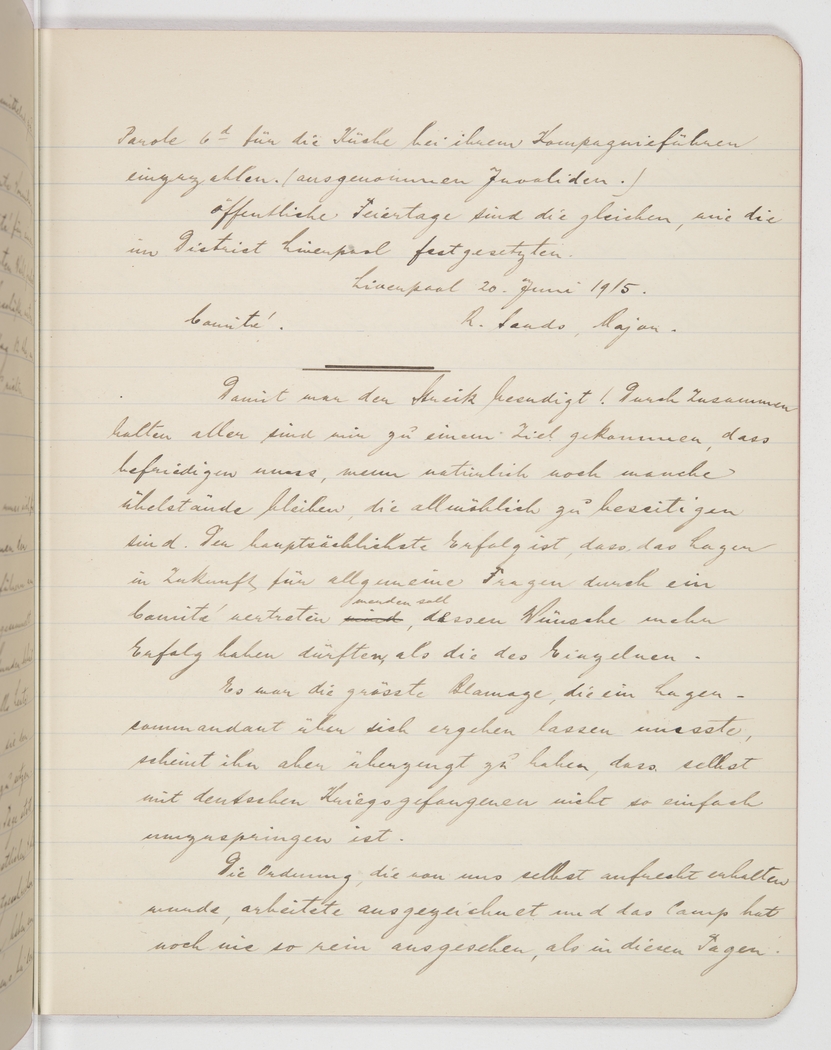 Parole 6d für die Küche bei ihrem Kompagnieführer
einzuzahlen. (ausgenommen Invaliden.)
öffentliche Feiertage sind die gleichen, wie die
im District Liverpool festgesetzten.
Liverpool 20. Juni 1915.
Comité. R. Sands, Major.
Damit war der Streik beendigt! Durch Zusammen
halten aller sind wir zu einem Ziel gekommen, dass
befriedigen muss, wenn natürlich noch manche
übelstände bleiben, die allmählich zu beseitigen
sind. Der hauptsächlichste Erfolg ist, dass das Lager
in Zukunft für allgemeine Fragen durch ein
werden soll
Comité vertreten wird, dessen Wünsche mehr
Erfolg haben dürften, als die des Einzelnen.
Es war die grösste Blamage, die ein Lager-
commandant über sich ergehen lassen musste,
scheint ihn aber überzeugt zu haben, dass selbst
mit deutschen Kriegsgefangenen nicht so einfach
umzuspringen ist.
Die Ordnung, die von uns selbst aufrecht erhalten
wurde, arbeitete ausgezeichnet und das Camp hat
noch nie so rein ausgesehen, als in diesen Tagen.